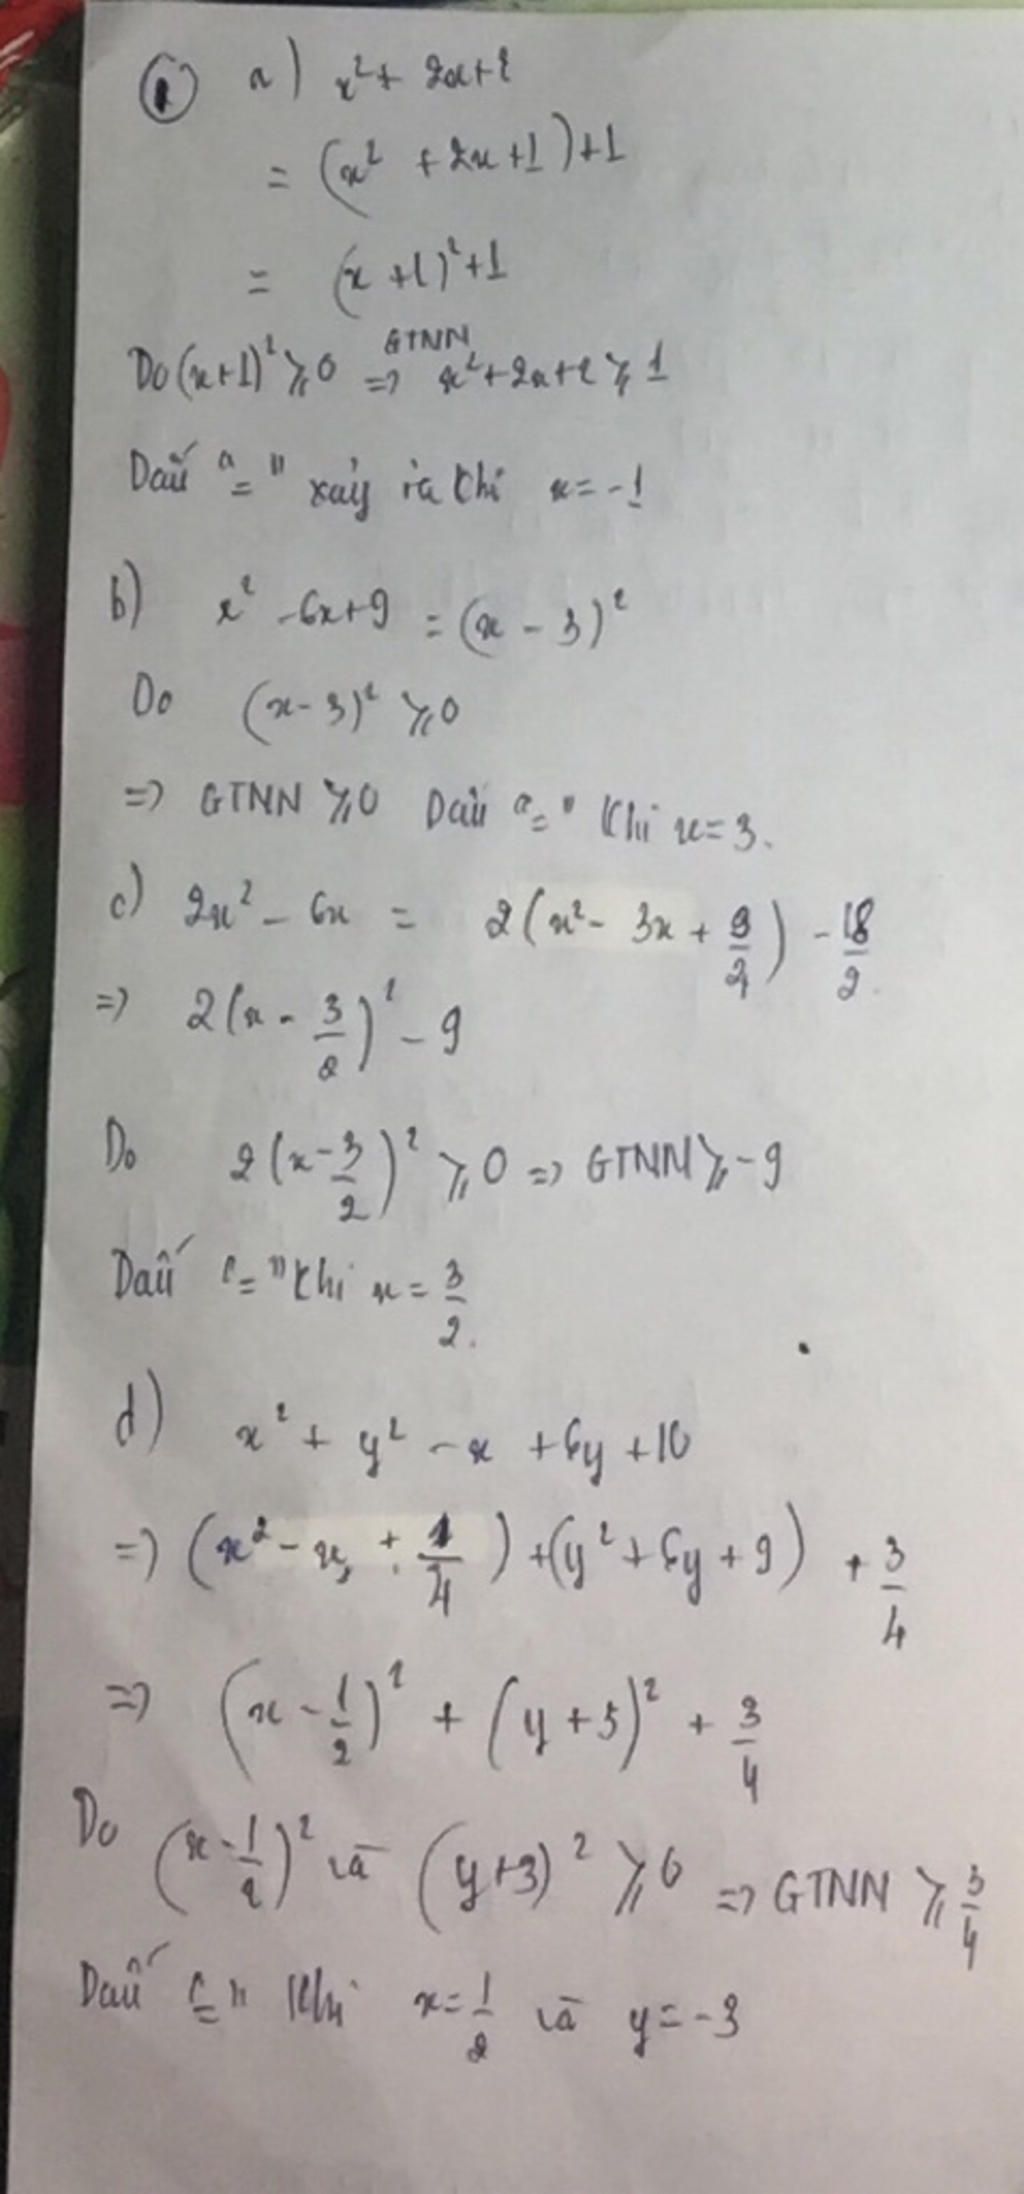 ① a) x² + 2x + 2
= (x² + 2x + 1) + 1
= (x + 1)² + 1
Do (x+1)² ⩾ 0 ⇒ GTNN x² + 2x + 2 ⩾ 1
Dấu "=" xảy ra khi x = -1
b) x² - 6x + 9 = (x - 3)²
Do (x - 3)² ⩾ 0
=> GTNN ⩾ 0 Dấu "=" khi x = 3.
c) 2x² - 6x = 2(x² - 3x + 9/4) - 18/2.
=> 2(x - 3/2)² - 9
Do 2(x - 3/2)² ⩾ 0 => GTNN ⩾ -9
Dấu "=" khi x = 3/2.
d) x² + y² - x + 6y + 10
=> (x² - x + 1/4) + (y² + 6y + 9) + 3/4
=> (x - 1/2)² + (y + 3)² + 3/4
Do (x - 1/2)² và (y + 3)² ⩾ 0 => GTNN ⩾ 3/4
Dấu "=" khi x = 1/2 và y = -3